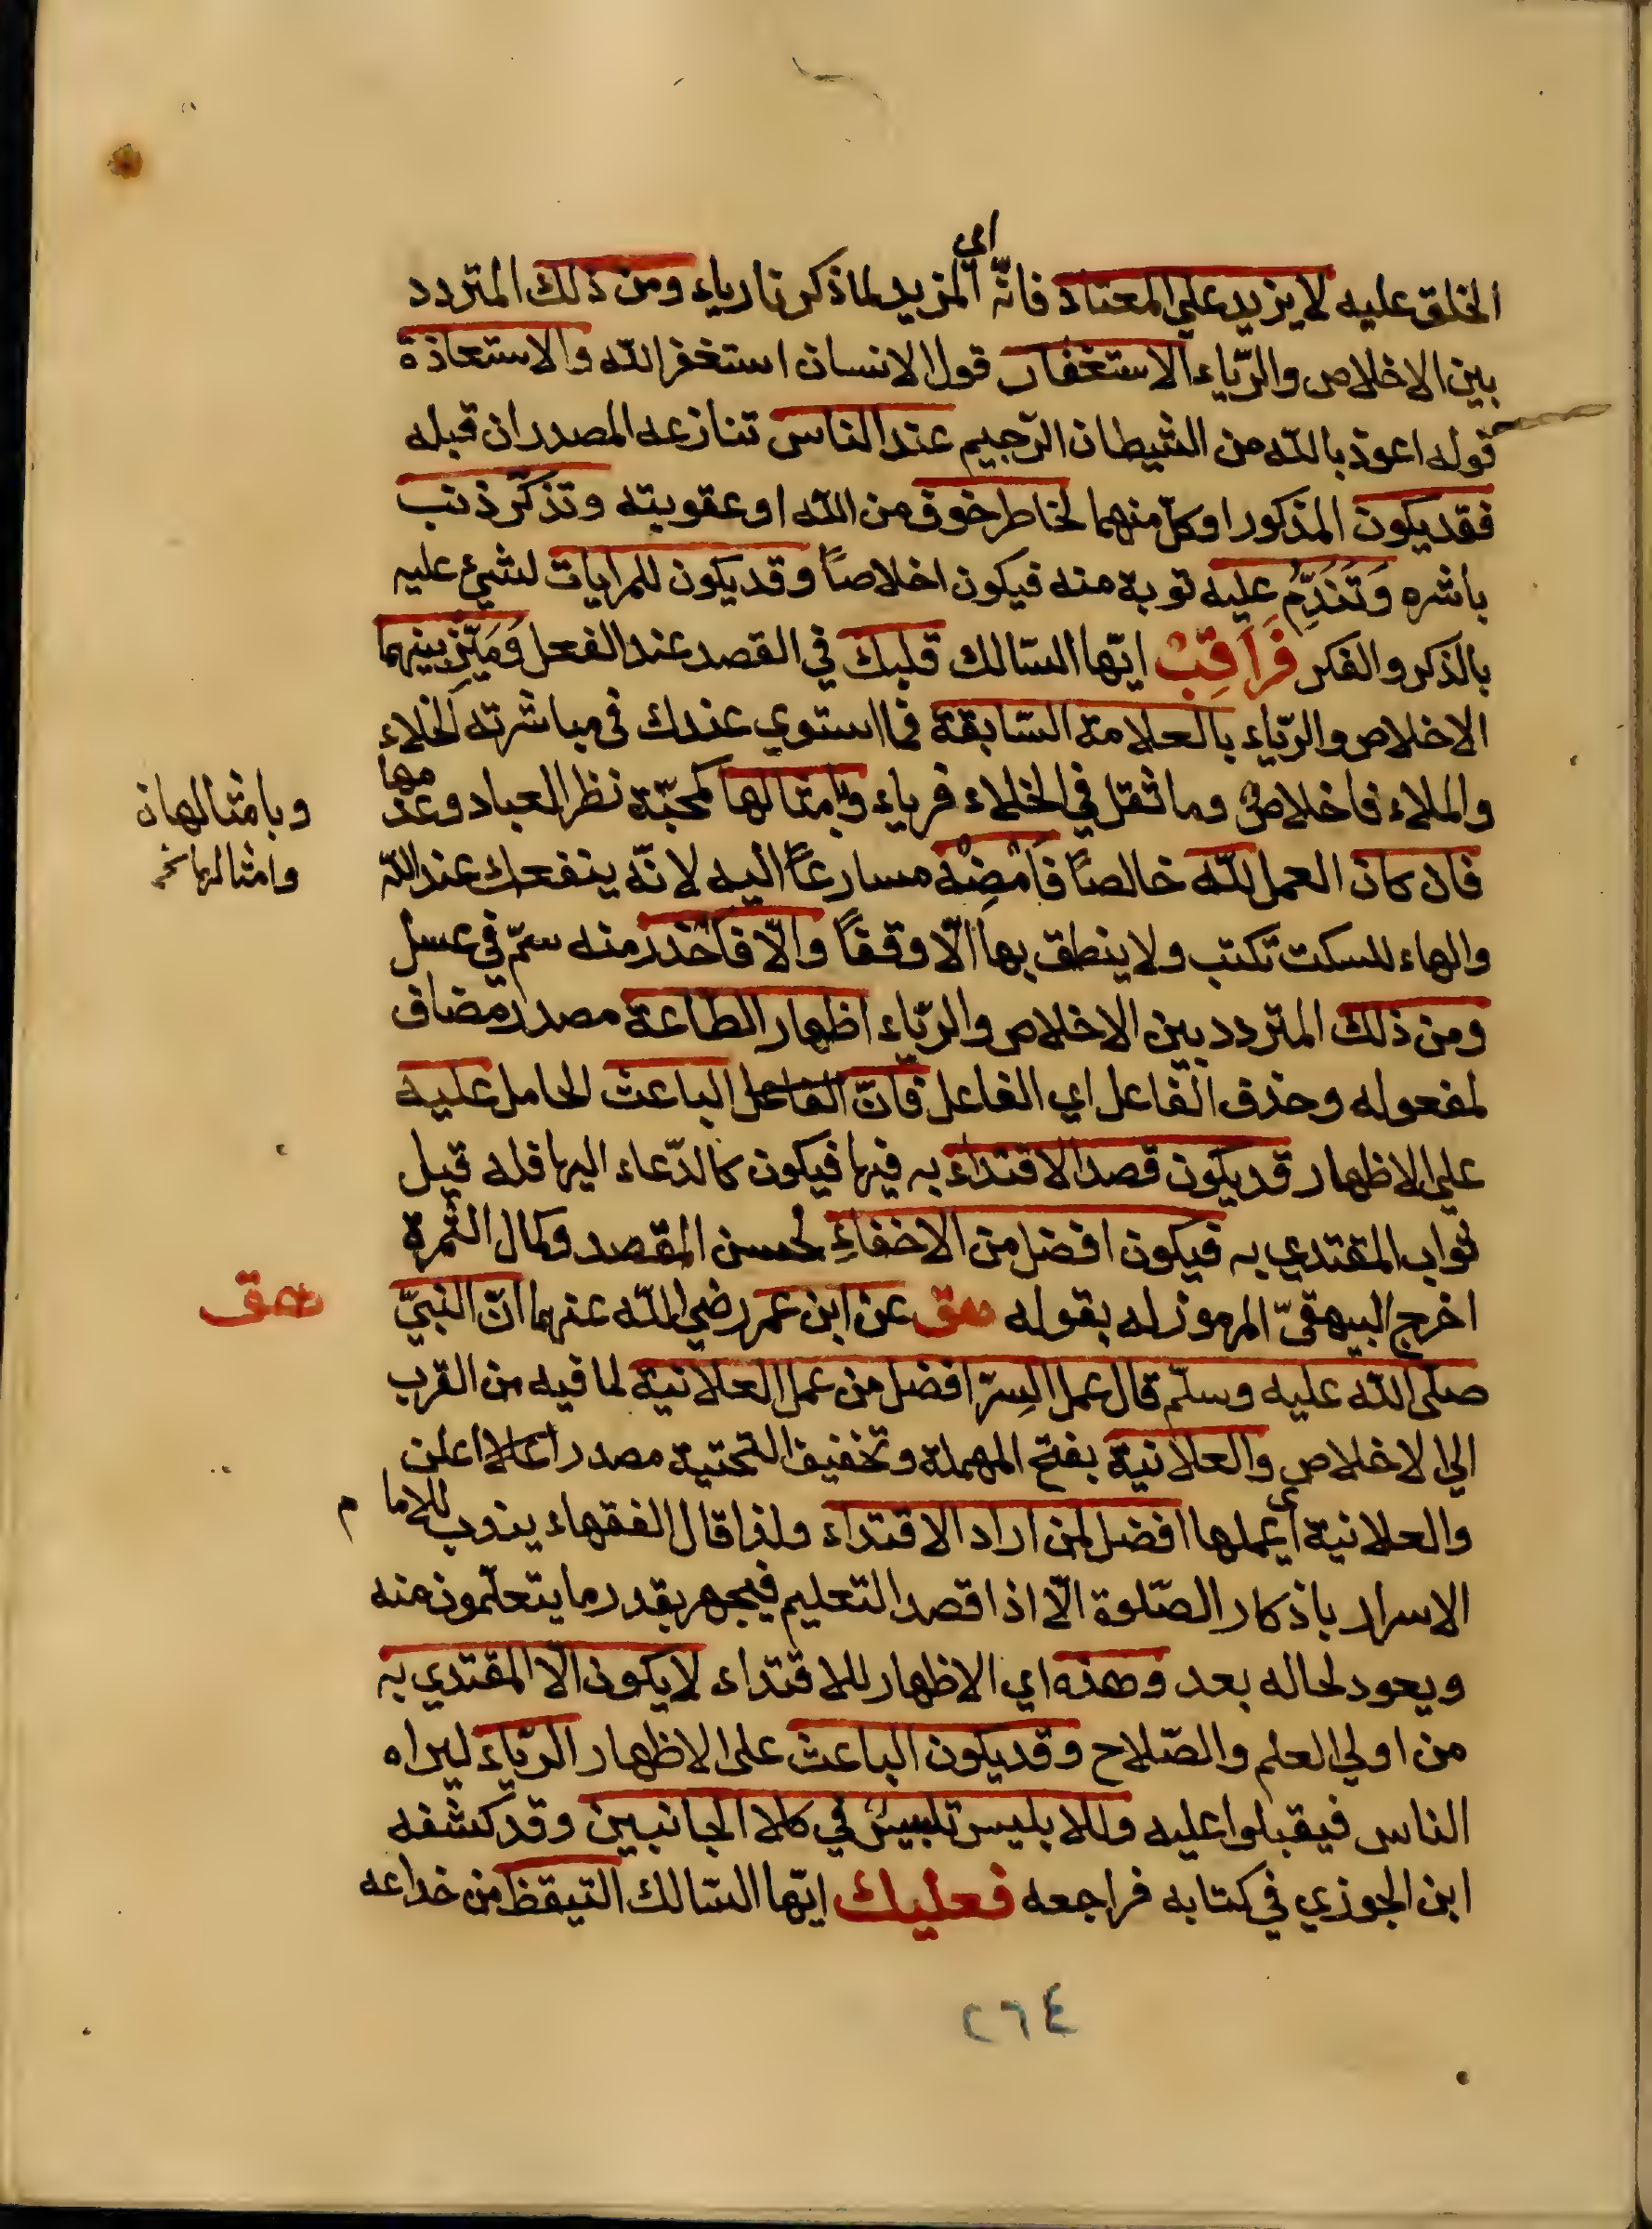 الخلق عليه لا يزيد على المعتاد فانّه اي المزيد لما ذكرنا رياء ومن ذلك المتردد
بين الاخلاص والرّياء الاستغفار قول الانسان استغفر الله والاستعاذة
قوله اعوذ بالله من الشيطان الرّجيم عند الناس تنازعه المصدران قبله
فقد يكون المذكور او كلّ منهما لخاطر خوف من الله او عقوبته وتذكّر ذنب
باشره وَتَنَدُّمٍ عليه توبة منه فيكون اخلاصاً وقد يكون للمرايات لشيء عليه
بالذكر والفكر فَرَاقِبْ ايّها السّالك قلبك في القصد عند الفعل وَمَيّز بينهما
الاخلاص والرّياء بالعلامة السّابقة فما استوي عندك في مباشرته الخلاء
والملاء فاخلاصٌ وما ثقل في الخلاء فرياء وبامثالها كمحبّة نظر العباد وعدمها
وبامثالها ن
وامثالها نخـ
فان كان العمل لله خالصاً فَاَمْضِهْ مسارعاً اليه لانّه ينفعك عند الله
والهاء للسكت تكتب ولا ينطق بها الّا وقفاً والّا فاحذر منه سمّ في عسل
ومن ذلك المتردد بين الاخلاص والرّياء اظهار الطّاعة مصدر مضاف
لمفعوله وحذف الفاعل اي الفاعل فانّ الفاعل الباعث الحامل عليه
علي الاظهار قد يكون قصد الاقتداء به فيها فيكون كالدّعاء اليها فله قبل
ثواب المقتدي به فيكون افضل من الاخفاءِ لحسن المقصد وكمال الثمرة
اخرج البيهقيّ المرموز له بقوله هق عن ابن عمر رضي الله عنهما انّ النبيّ
هق
صلى الله عليه وسلّم قال عمل السِرّ افضل من عمل العلانية لما فيه من القرب
الي الاخلاص والعلانية بفتح المهملة وتخفيف التحتية مصدر اعلن
والعلانية اي عملها افضل لمن اراد الاقتداء ولذا قال الفقهاء يندب للامام
الاسرار باذكار الصّلوة الّا اذا قصد التعليم فيجهر بقدر ما يتعلّمون منه
ويعود لحاله بعد وهذه اي الاظهار للاقتداء لا يكون الّا المقتدي به
من اولي العلم والصّلاح وقد يكون الباعث على الاظهار الرّياء ليراه
الناس فيقبلوا عليه وللابليس تلبيسٌ في كلا الجانبين وقد كشفه
ابن الجوزي في كتابه فراجعه فعليك ايّها السّالك التيقظ من خداعه
٢٦٤